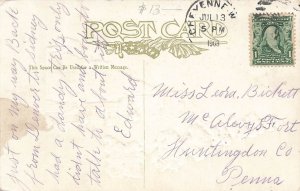 $13—
POST CARD
CHEYENNE, W
JUL 13
5 PM
1908
This Space Can Be Used for a Written Message.
Just on my way Back
from Denver to Sidney
had a dandy trip only
don't have any body to
talk to about it.
Edward
Miss Leora Bickett
McAlevys Fort
Huntingdon Co
Penna